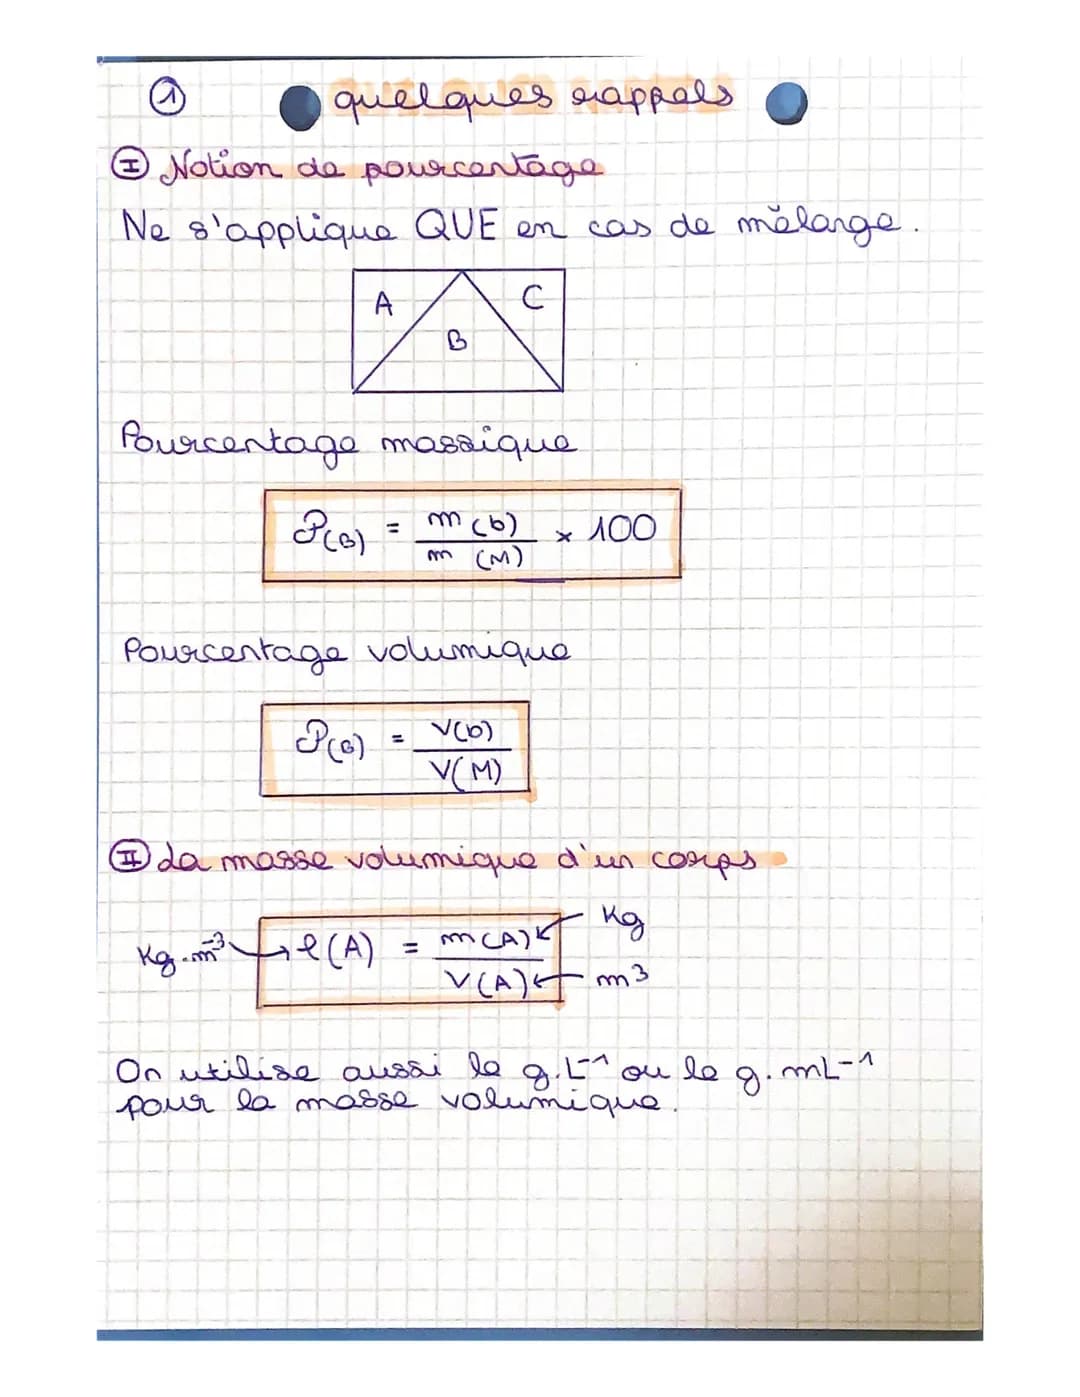 ①
quelques rappels
Ⓘ Notion de pourcentage
Ne s'applique QUE en cas de mélange.
A B C
Pourcentage massique
P(B) = m(b) / m(M) x 100
Pourcentage volumique
P(B) = V(b) / V(M)
Ⅱ La masse volumique d'un corps
Kg.m⁻³ → ρ(A) = m(A) / V(A) ← Kg ← m³
On utilise aussi le g.L⁻¹ ou le g.mL⁻¹
pour la masse volumique.